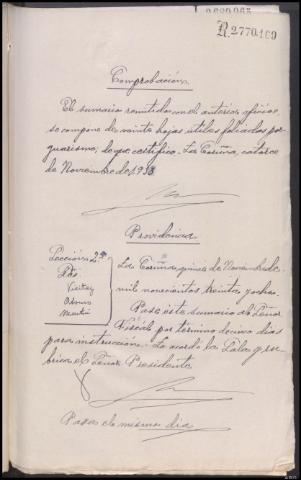 R.2770.169
Comprobación
El sumario remitido con el anterior oficio,
se compone de veinte hojas útiles foliadas por
guarismo, lo que certifico. La Coruña, catorce
de Noviembre de 1938
Providencia
Sección 2ª
Sres.
La Coruña, quince de Noviembre de
mil novecientos treinta y ocho.
Pase este sumario al Señor
Fiscal por término de cinco dias
para instrucción. Lo acordó la Sala y ru-
brica el Señor Presidente
Pasa el mismo dia